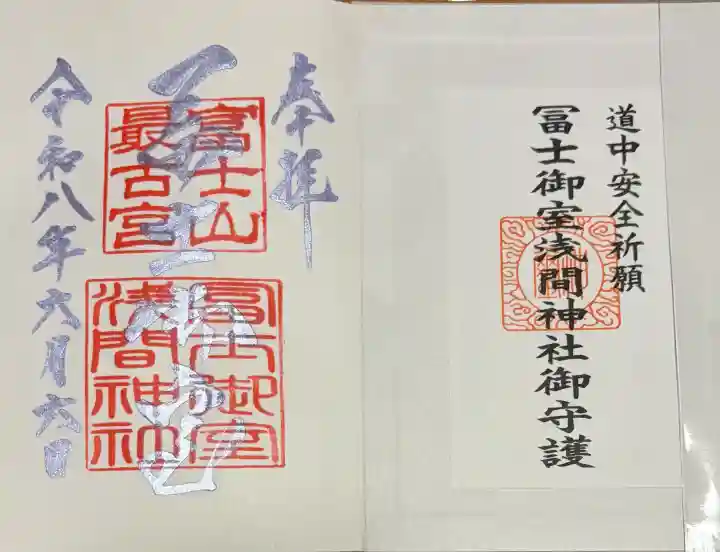 道中安全祈願
冨士御室浅間神社御守護
奉拝
富士山
最古宮
冨士御室
浅間神社
令和八年六月六日